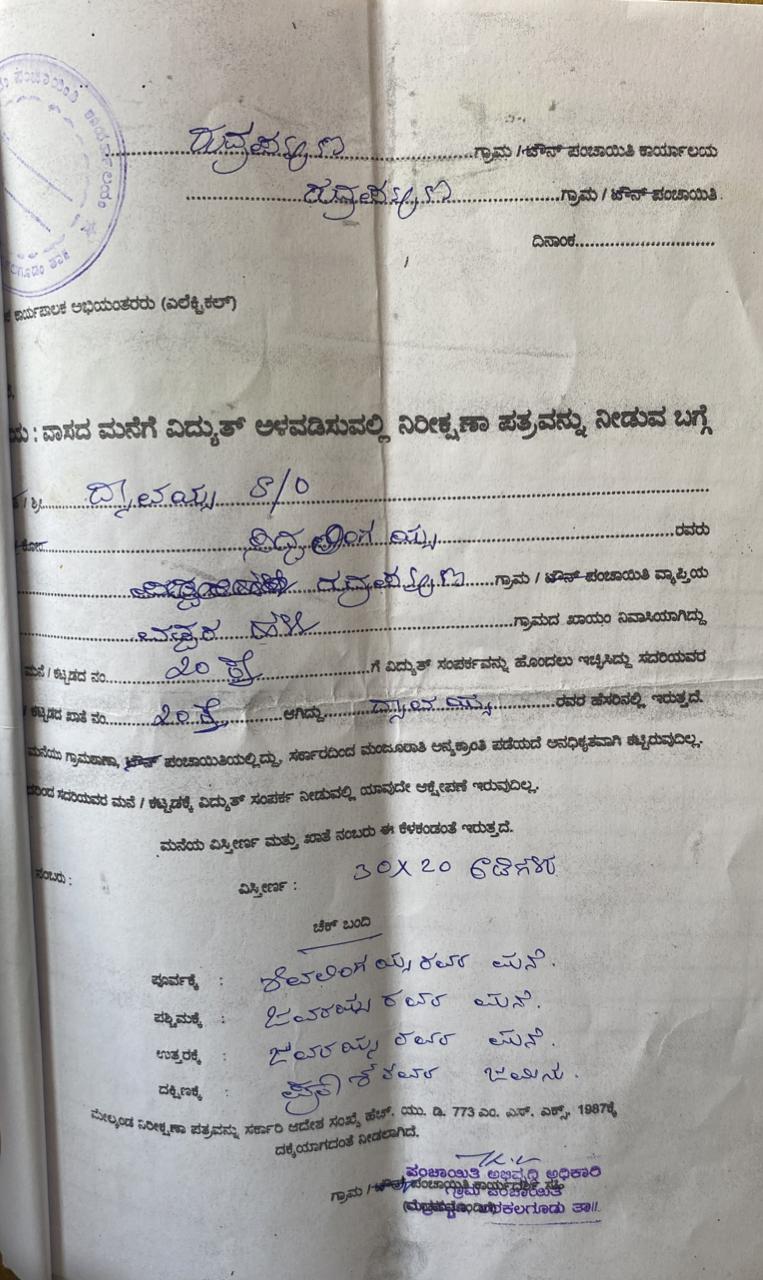 ರುದ್ರಪಟ್ಟಣ ಗ್ರಾಮ / ಟೌನ್ ಪಂಚಾಯಿತಿ ಕಾರ್ಯಾಲಯ
ರುದ್ರಪಟ್ಟಣ ಗ್ರಾಮ / ಟೌನ್ ಪಂಚಾಯಿತಿ
ದಿನಾಂಕ
ಕಾರ್ಯಪಾಲಕ ಅಭಿಯಂತರರು (ಎಲೆಕ್ಟ್ರಿಕಲ್)
: ವಾಸದ ಮನೆಗೆ ವಿದ್ಯುತ್ ಅಳವಡಿಸುವಲ್ಲಿ ನಿರೀಕ್ಷಣಾ ಪತ್ರವನ್ನು ನೀಡುವ ಬಗ್ಗೆ
/ ಶ್ರೀ. ದ್ಯಾವಯ್ಯ S/O
ಸಿದ್ದಲಿಂಗಯ್ಯ ರವರು
ರುದ್ರಪಟ್ಟಣ ಗ್ರಾಮ / ಟೌನ್ ಪಂಚಾಯಿತಿ ವ್ಯಾಪ್ತಿಯ
ಹಳ್ಳಿ ಗ್ರಾಮದ ಖಾಯಂ ನಿವಾಸಿಯಾಗಿದ್ದು
ಮನೆ / ಕಟ್ಟಡದ ನಂ. 20 ಗೆ ವಿದ್ಯುತ್ ಸಂಪರ್ಕವನ್ನು ಹೊಂದಲು ಇಚ್ಛಿಸಿದ್ದು ಸದರಿಯವರ
/ ಕಟ್ಟಡದ ಖಾತೆ ನಂ. 20 ಆಗಿದ್ದು ದ್ಯಾವಯ್ಯ ರವರ ಹೆಸರಿನಲ್ಲಿ ಇರುತ್ತದೆ.
ಮನೆಯು ಗ್ರಾಮಠಾಣಾ, ಟೌನ್ ಪಂಚಾಯಿತಿಯಲ್ಲಿದ್ದು, ಸರ್ಕಾರದಿಂದ ಮಂಜೂರಾತಿ ಅನ್ಯಕ್ರಾಂತಿ ಪಡೆಯದೆ ಅನಧಿಕೃತವಾಗಿ ಕಟ್ಟಿರುವುದಿಲ್ಲ.
ಸದರಿಯವರ ಮನೆ / ಕಟ್ಟಡಕ್ಕೆ ವಿದ್ಯುತ್ ಸಂಪರ್ಕ ನೀಡುವಲ್ಲಿ ಯಾವುದೇ ಆಕ್ಷೇಪಣೆ ಇರುವುದಿಲ್ಲ.
ಮನೆಯ ವಿಸ್ತೀರ್ಣ ಮತ್ತು ಖಾತೆ ನಂಬರು ಈ ಕೆಳಕಂಡಂತೆ ಇರುತ್ತದೆ.
ನಂಬರು : ವಿಸ್ತೀರ್ಣ : 30X20 ಅಡಿಗಳು
ಚೆಕ್ ಬಂದಿ
ಪೂರ್ವಕ್ಕೆ : ಶಿವಲಿಂಗಯ್ಯ ರವರ ಮನೆ.
ಪಶ್ಚಿಮಕ್ಕೆ : ಜವರಯ್ಯ ರವರ ಮನೆ.
ಉತ್ತರಕ್ಕೆ : ಜವರಯ್ಯ ರವರ ಮನೆ.
ದಕ್ಷಿಣಕ್ಕೆ : ರವರ ಜಮೀನು.
ಮೇಲ್ಕಂಡ ನಿರೀಕ್ಷಣಾ ಪತ್ರವನ್ನು ಸರ್ಕಾರಿ ಆದೇಶ ಸಂಖ್ಯೆ ಹೆಚ್. ಯು. ಡಿ. 773 ಎಂ. ಎನ್. ಎಕ್ಸ್, 1987ಕ್ಕೆ
ದಕ್ಕೆಯಾಗದಂತೆ ನೀಡಲಾಗಿದೆ.
ಪಂಚಾಯಿತಿ ಅಭಿವೃದ್ಧಿ ಅಧಿಕಾರಿ
ಗ್ರಾಮ / ಪಂಚಾಯಿತಿ ಕಾರ್ಯದರ್ಶಿ
ಗ್ರಾಮ ಪಂಚಾಯಿತಿ
ಅರಕಲಗೂಡು ತಾ॥